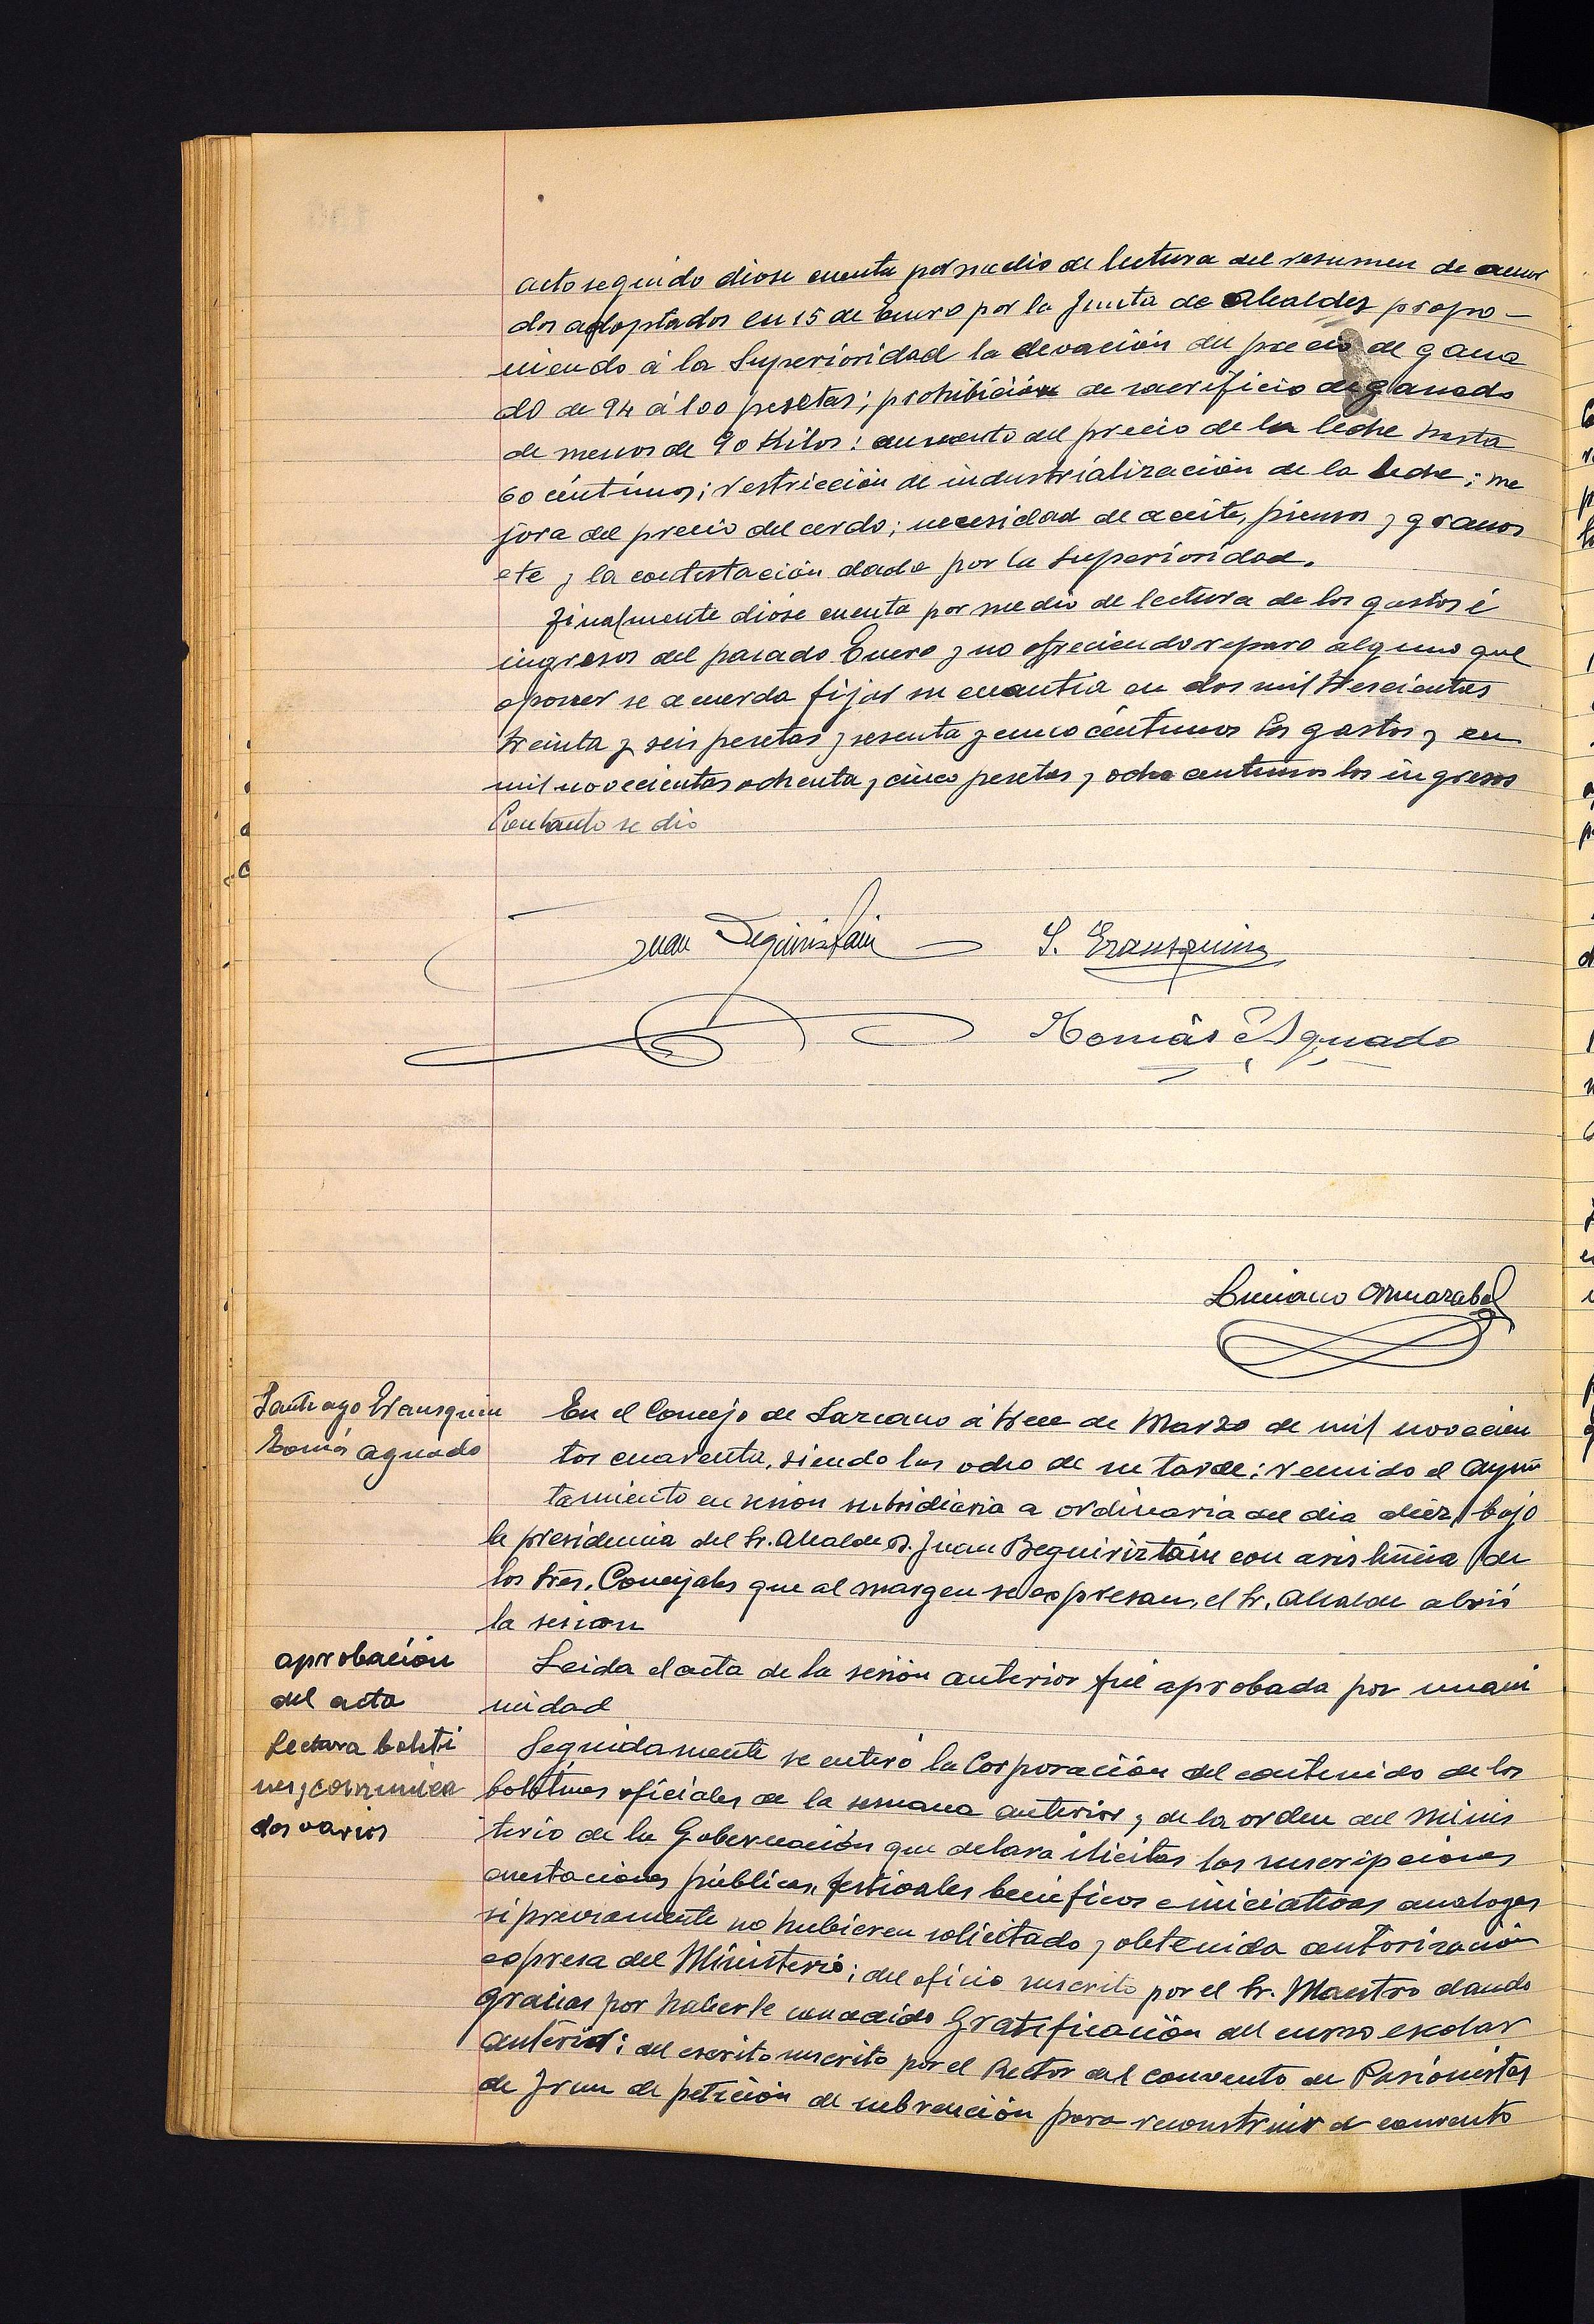 acto seguido diose cuenta por medio de lectura del resumen de acuer
dos adoptados en 15 de Enero por la Junta de Alcaldes propo-
niendo á la Superioridad la elevación del precio de gana
do de 94 á 100 pesetas; prohibición de sacrificio de ganado
de menos de 90 Kilos: aumento del precio de la leche hasta
60 céntimos; restricción de industrialización de la leche; me
jora del precio del cerdo; necesidad de aceite, piensos y granos
etc y la contestación dada por la Superioridad.
Finalmente dióse cuenta por medio de lectura de los gastos é
ingresos del pasado Enero y no ofreciendo reparo alguno que
oponer se acuerda fijar su cuantia en dos mil trescientas
treinta y seis pesetas y sesenta y cinco céntimos los gastos y en
mil novecientas ochenta y cinco pesetas y ocho centimos los ingresos
Contanto se dio
Juan Beguiristain
S. Erausquin
Tomás Aguado
Luciano Ormazabal
Santiago Erausquin
Tomás Aguado
En el Concejo de Lazcano á trece de Marzo de mil novecien
tos cuarenta, siendo las ocho de su tarde: reunido el Ayun
tamiento en sesion subsidiaria a ordinaria del dia diez, bajo
la presidencia del Sr. Alcalde D. Juan Beguiriztáin con asistencia de
los Sres. Concejales que al margen se expresan, el Sr. Alcalde abrió
la sesion
aprobación
del acta
Leida el acta de la sesión anterior fué aprobada por unani
midad
Lectura boleti
nes y comunica
dos varios
Seguidamente se enteró la Corporación del contenido de los
boletines oficiales de la semana anterior y de la orden del Minis
terio de la Gobernación que delara ilicitas las suscripciones
cuestaciones públicas, festivales beneficos e iniciativas analogas
si previamente no hubieren solicitado y obtenida autorización
expresa del Ministerio; del oficio suscrito por el Sr. Maestro dando
gracias por haberle concedido Gratificación del curso escolar
anterior: del escrito suscrito por el Rector del convento de Pasionistas
de Irun de petición de subvención para reconstruir el convento